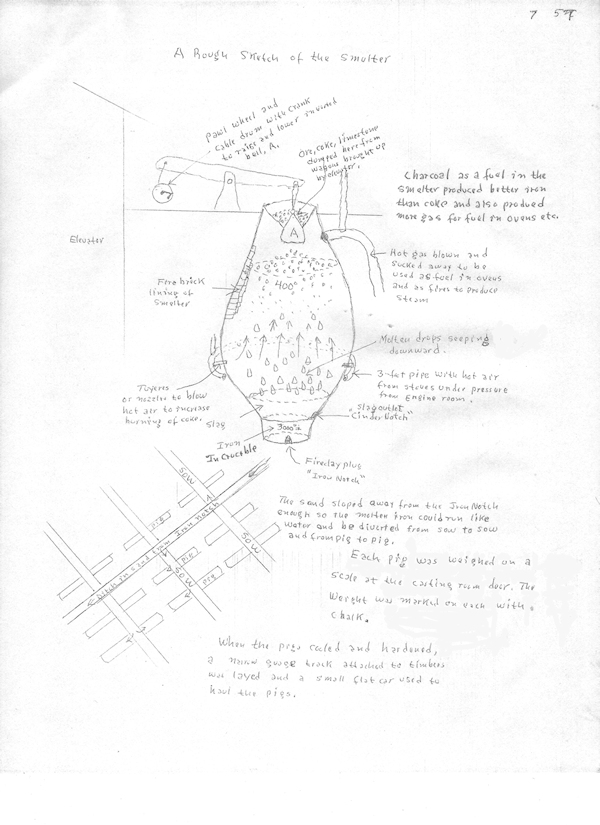 7 57
A Rough Sketch of the Smelter
Pawl wheel and
cable drum with crank
to raise and lower inverted
bell, A.
Ore, coke, limestone
dumped here from
wagons brought up
by elevator.
Charcoal as a fuel in the
smelter produced better iron
than coke and also produced
more gas for fuel in ovens etc.
Elevator
A
Hot gas blown and
sucked away to be
used as fuel in ovens
and as fires to produce
steam
Fire brick
lining of
smelter
400°
Molten drops seeping
downward.
Tuyeres
or nozzles to blow
hot air to increase
burning of coke.
3-foot pipe with hot air
from stoves under pressure
from engine room.
Slag
"Slag outlet
Cinder Notch"
Iron
In Crucible
3000°±
Fireclay plug
"Iron Notch"
SOW
Pig
Ditch in sand from Iron Notch
SOW
Pig
SOW
Pig
The sand sloped away from the Iron Notch
enough so the molten iron could run like
water and be diverted from sow to sow
and from pig to pig.
Each pig was weighed on a
scale at the casting room door. The
weight was marked on each with a
chalk.
When the pigs cooled and hardened,
a narrow guage track attached to timbers
was layed and a small flat car used to
haul the pigs.